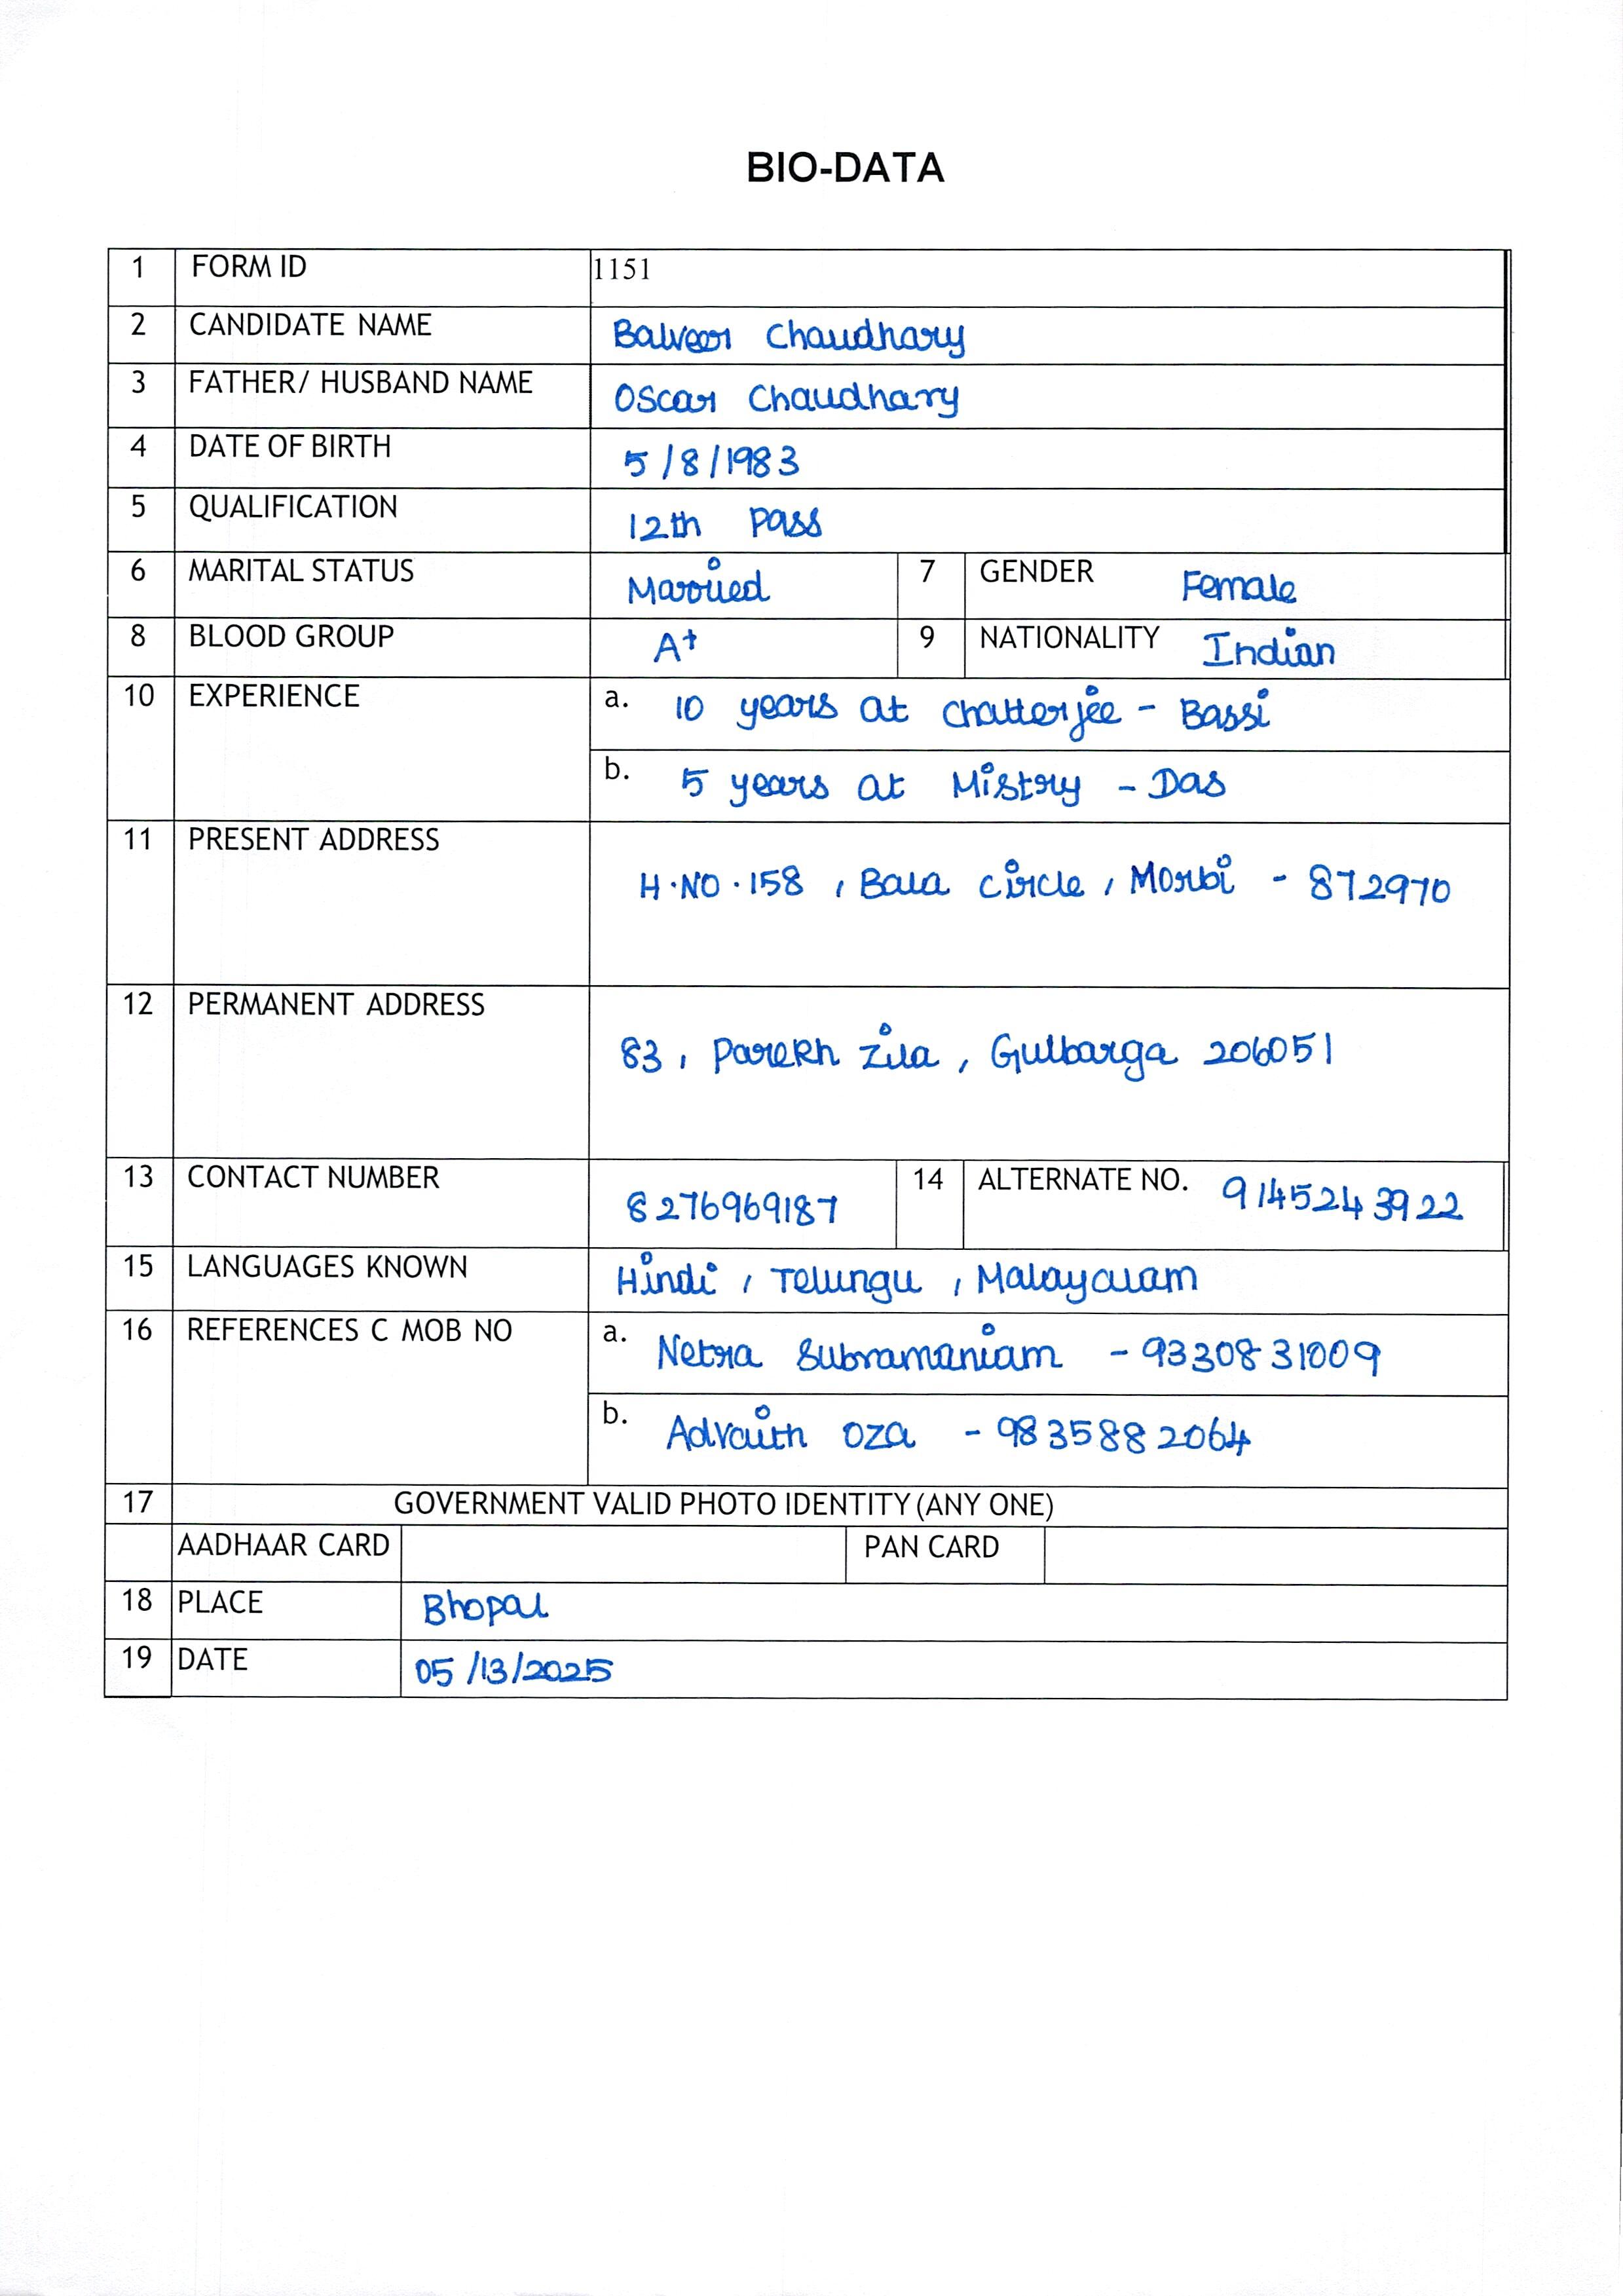 BIO-DATA
1 FORM ID 1151
2 CANDIDATE NAME Balveer Chaudhary
3 FATHER/ HUSBAND NAME Oscar Chaudhary
4 DATE OF BIRTH 5/8/1983
5 QUALIFICATION 12th Pass
6 MARITAL STATUS Married 7 GENDER Female
8 BLOOD GROUP A+ 9 NATIONALITY Indian
10 EXPERIENCE a. 10 years at Chatterjee - Bassi
b. 5 years at Mistry - Das
11 PRESENT ADDRESS
H.NO.158, Bala Circle, Morbi - 872970
12 PERMANENT ADDRESS
83, Parekh Zila, Gulbarga 206051
13 CONTACT NUMBER 8276969187 14 ALTERNATE NO. 9145243922
15 LANGUAGES KNOWN Hindi, Telungu, Malayalam
16 REFERENCES C MOB NO a. Netra Subramaniam - 9330831009
b. Advaith Oza - 9835882064
17 GOVERNMENT VALID PHOTO IDENTITY (ANY ONE)
AADHAAR CARD PAN CARD
18 PLACE Bhopal
19 DATE 05/13/2025